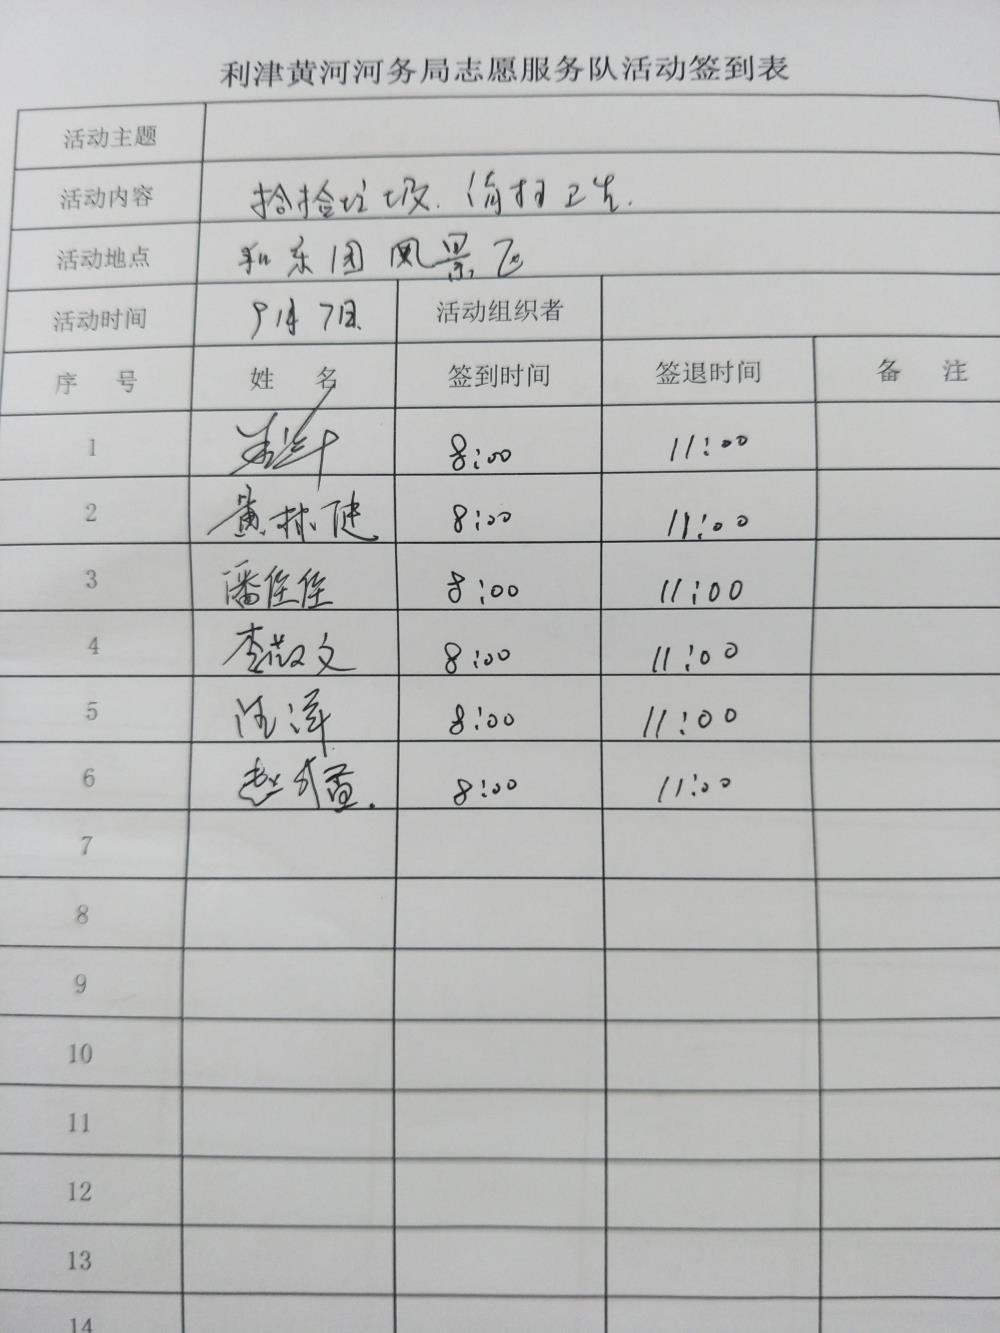 利津黄河河务局志愿服务队活动签到表
活动主题
活动内容 捡拾垃圾.清扫卫生.
活动地点 东团风景区
活动时间 9月7日 活动组织者
序 号 姓 名 签到时间 签退时间 备 注
1 8:00 11:00
2 黄林健 8:00 11:00
3 潘佳佳 8:00 11:00
4 李文 8:00 11:00
5 洋 8:00 11:00
6 赵 8:00 11:00
7
8
9
10
11
12
13
14